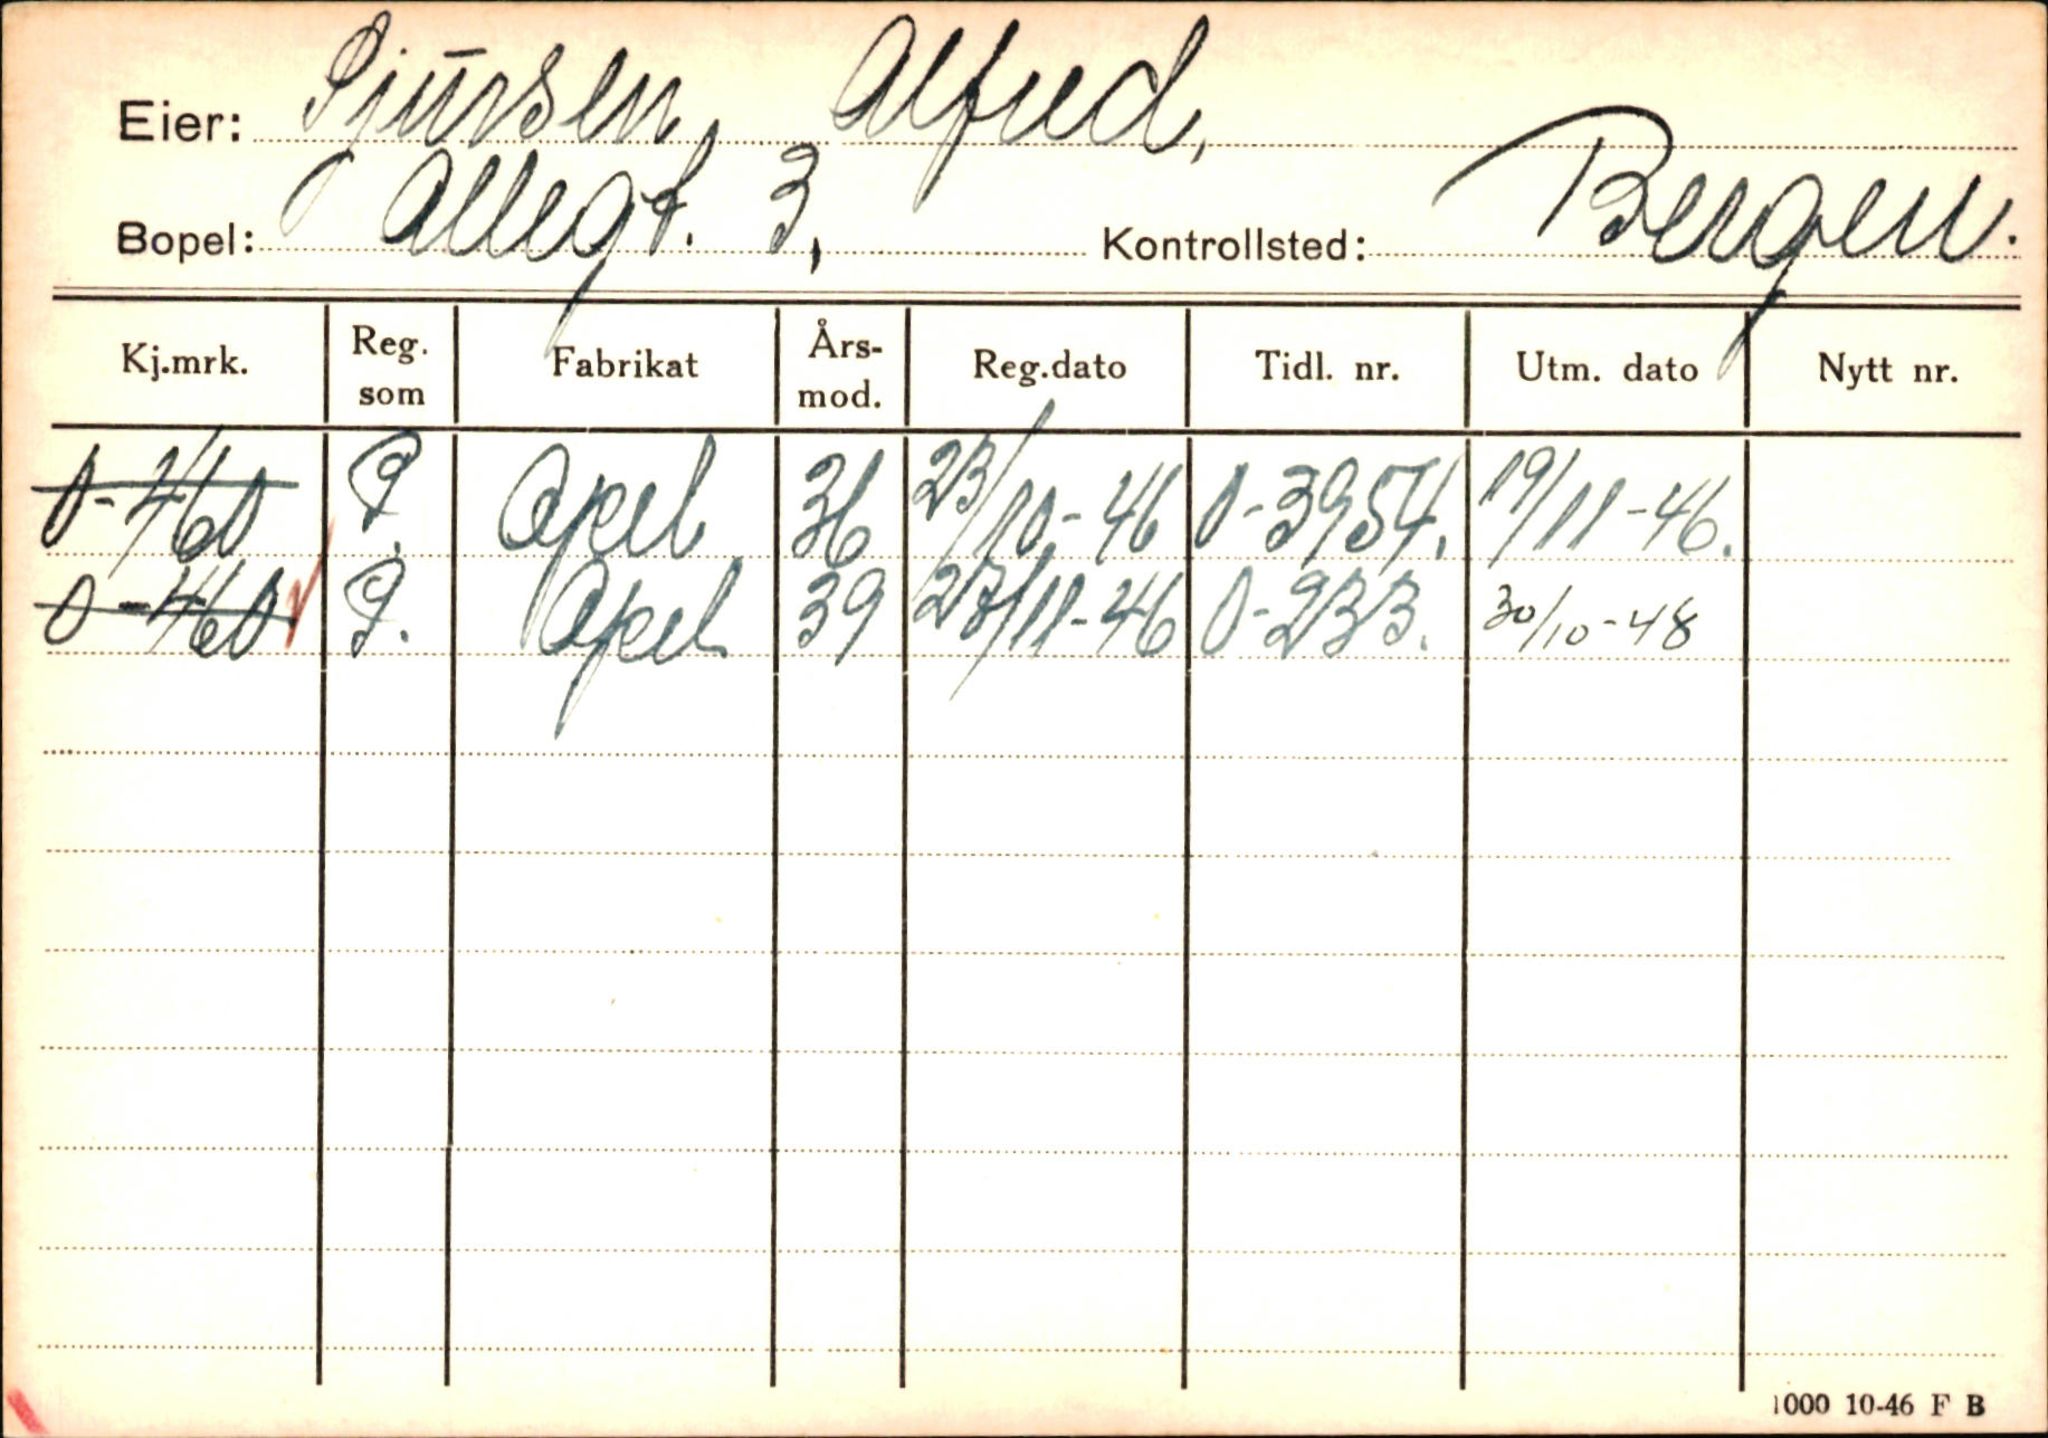 Eier: Sjursen, Alfred,
Bopel: Allegt. 3, Kontrollsted: Bergen.
Kj.mrk. Reg. som Fabrikat Års- mod. Reg.dato Tidl. nr. Utm. dato Nytt nr.
O-460 P. Opel 36 23/10-46 O-3954. 19/11-46.
O-460 P. Opel 39 27/11-46 O-233. 30/10-48
1000 10-46 F B